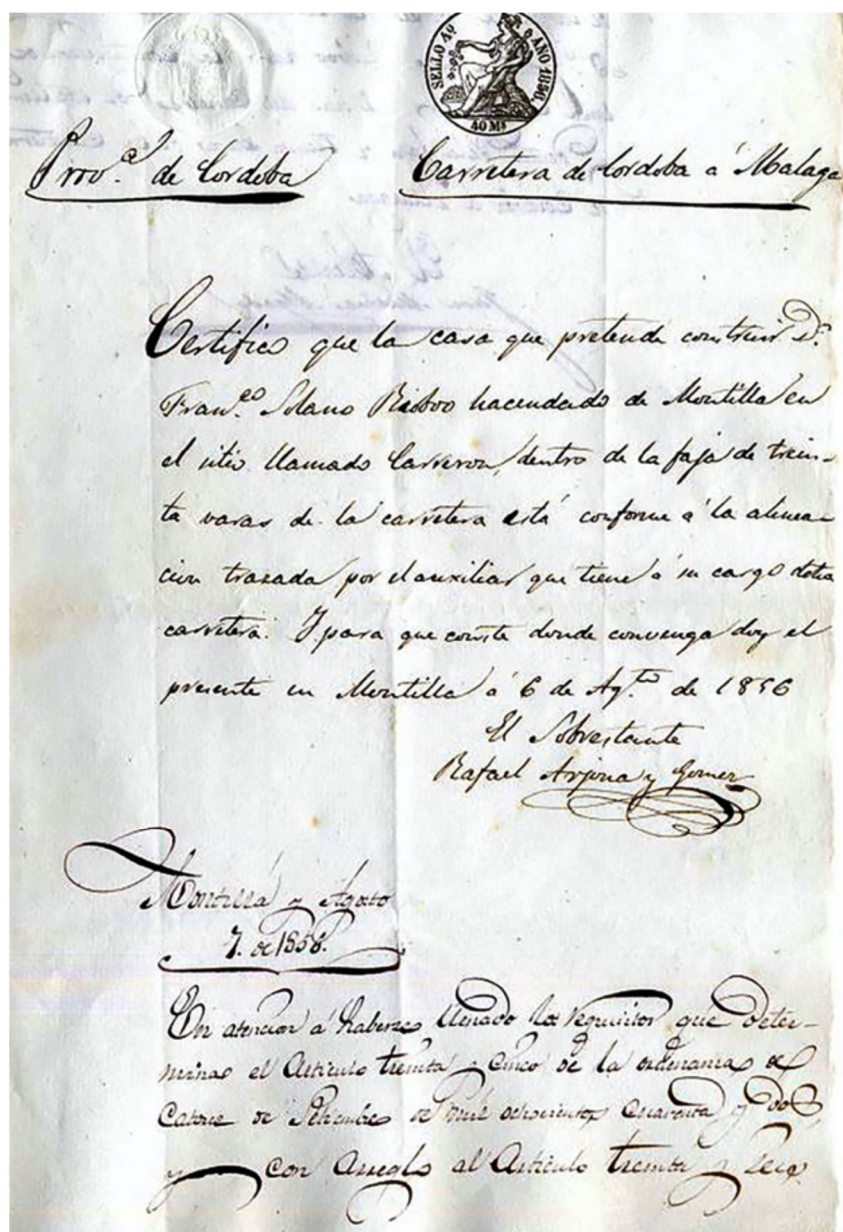 SELLO 4º AÑO 1856.
40 Ms
Prov.ª de Cordoba
Carretera de Cordoba á Malaga
Certifico que la casa que pretende construir D.n
Fran.co Solano Rioboo hacendado de Montilla en
el sitio llamado Carreron, dentro de la faja de trein-
ta varas de la carretera está conforme á la alinea-
cion trazada por el auxiliar que tiene á su cargo dcha
carretera. Y para que conste donde convenga doy el
presente en Montilla á 6 de Ag.to de 1856
El Sobrestante
Rafael Arjona y Gomez
Montilla y Agosto
7. de 1856.
En atencion á haberse llenado los requisitos que deter-
mina el Articulo treinta y cinco de la ordenanza de
Catorce de Setiembre de mil ochocientos cuarenta y dos,
y con arreglo al Articulo treinta y seis